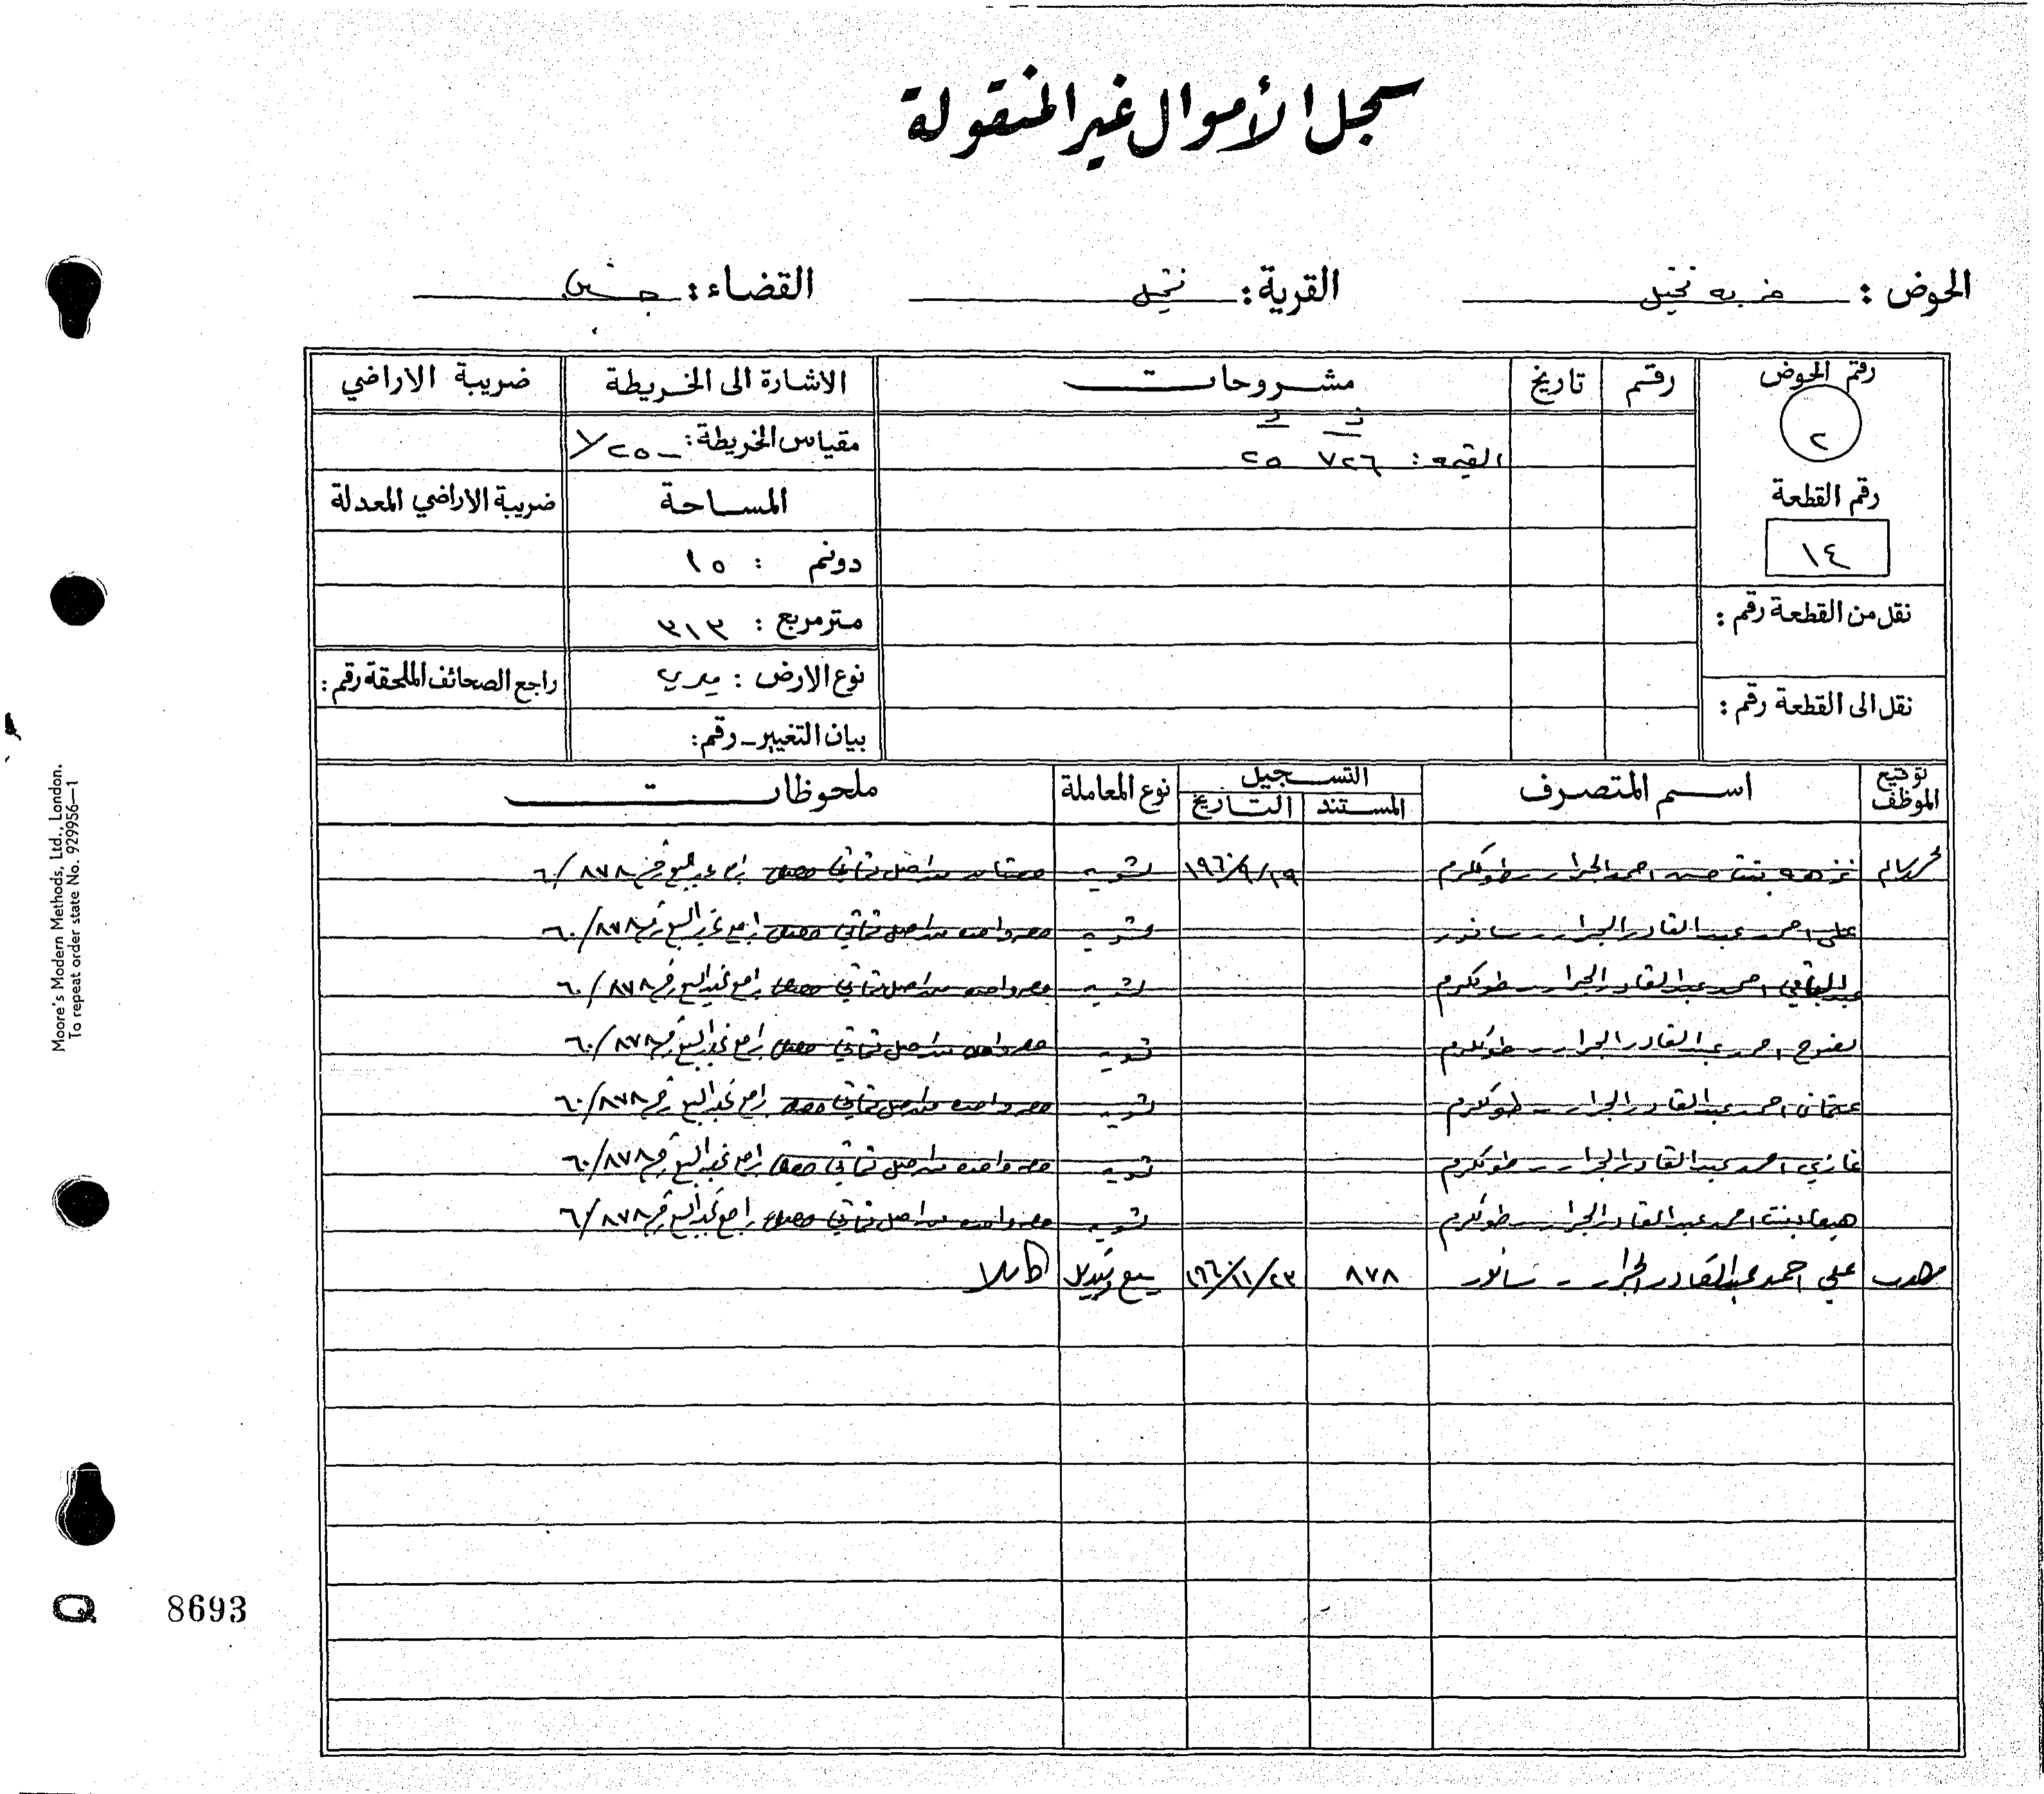 سجل الأموال غير المنقولة
الحوض : خربه نخيل القرية : نخيل القضاء : جنين
رقم الحوض رقم تاريخ مشروحات الاشارة الى الخريطة ضريبة الاراضي
٢ القيمه : ٧٢٦ ٢٥ مقياس الخريطة : ١/٢٥٠٠
رقم القطعة المساحة ضريبة الاراضي المعدلة
١٤ دونم : ١٥
نقل من القطعة رقم : متر مربع : ٣١٣
نوع الارض : ميري راجع الصحائف الملحقة رقم :
نقل الى القطعة رقم : بيان التغيير - رقم :
توقيع الموظف اسم المتصرف التسجيل نوع المعاملة ملحوظات
المستند التاريخ
نزهه بنت حسن احمد الجرار - طولكرم ١٩٦٠/٩/١٩ تسويه حصتان من اصل ثماني حصص راجع عقد البيع رقم ٦٠/٨٧٨
علي احمد عبد القادر الجرار - صانور تسويه حصه واحده من اصل ثماني حصص راجع عقد البيع رقم ٦٠/٨٧٨
عبد الباقي احمد عبد القادر الجرار - طولكرم تسويه حصه واحده من اصل ثماني حصص راجع عقد البيع رقم ٦٠/٨٧٨
احمد عبد القادر الجرار - طولكرم تسويه حصه واحده من اصل ثماني حصص راجع عقد البيع رقم ٦٠/٨٧٨
عثمان احمد عبد القادر الجرار - طولكرم تسويه حصه واحده من اصل ثماني حصص راجع عقد البيع رقم ٦٠/٨٧٨
غازي احمد عبد القادر الجرار - طولكرم تسويه حصه واحده من اصل ثماني حصص راجع عقد البيع رقم ٦٠/٨٧٨
بنت احمد عبد القادر الجرار - طولكرم تسويه حصه واحده من اصل ثماني حصص راجع عقد البيع رقم ٦٠/٨٧٨
علي احمد عبد القادر الجرار - صانور ٨٧٨ ١٩٦٠/١١/٢٣ بيع كاملا
Moore's Modern Methods, Ltd., London.
To repeat order state No. 929956—1
Q 8693